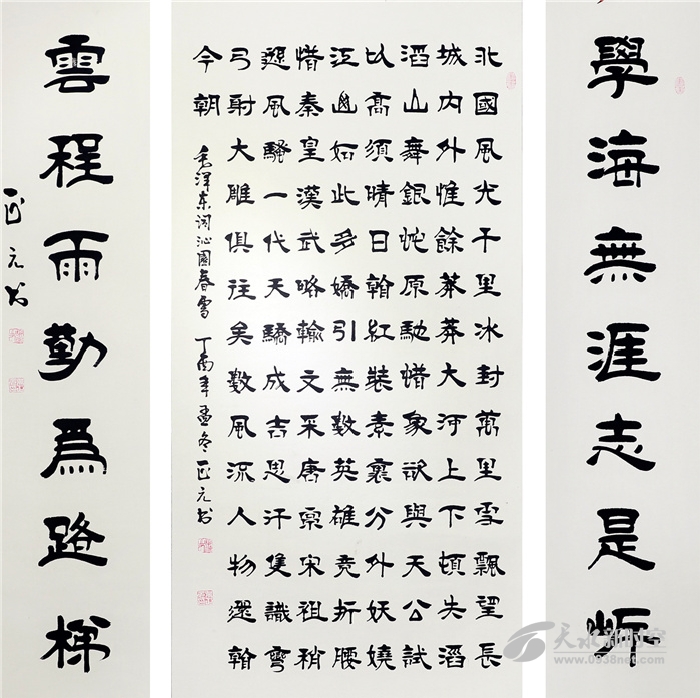 學海無涯志是
北國風光千里冰封萬里雪飄望長
城内外惟餘莽莽大河上下頓失滔
滔山舞銀蛇原馳蜡象欲與天公試
以高須晴日看紅裝素裹分外妖嬈
江山如此多嬌引無數英雄競折腰
惜秦皇漢武略輸文采唐宗宋祖稍
遜風騷一代天驕成吉思汗隻識彎
弓射大雕俱往矣數風流人物還看
今朝
毛泽东词沁園春雪 丁酉年孟冬 正元书
雲程雨勤爲路梯
正元书
天水新时空
www.0938net.com